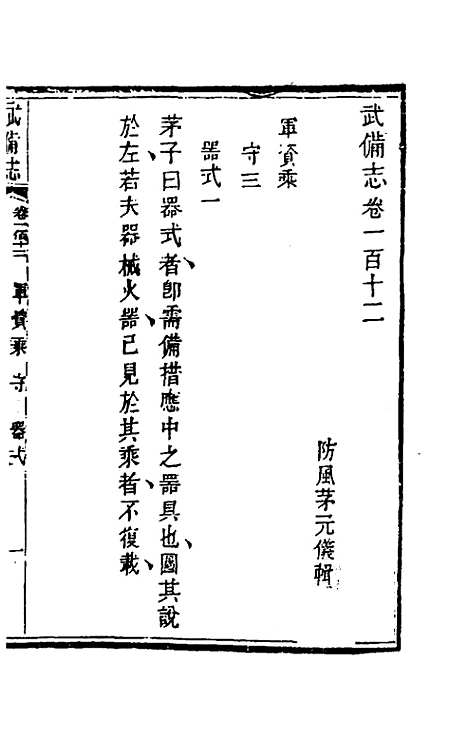 武備志卷一百十二
防風茅元儀輯
軍資乘
守三
器式一
茅子曰器式者卽需備措應中之器具也圖其說
於左若夫器械火器已見於其乘者不復載
武備志
軍資乘 守 器式
一